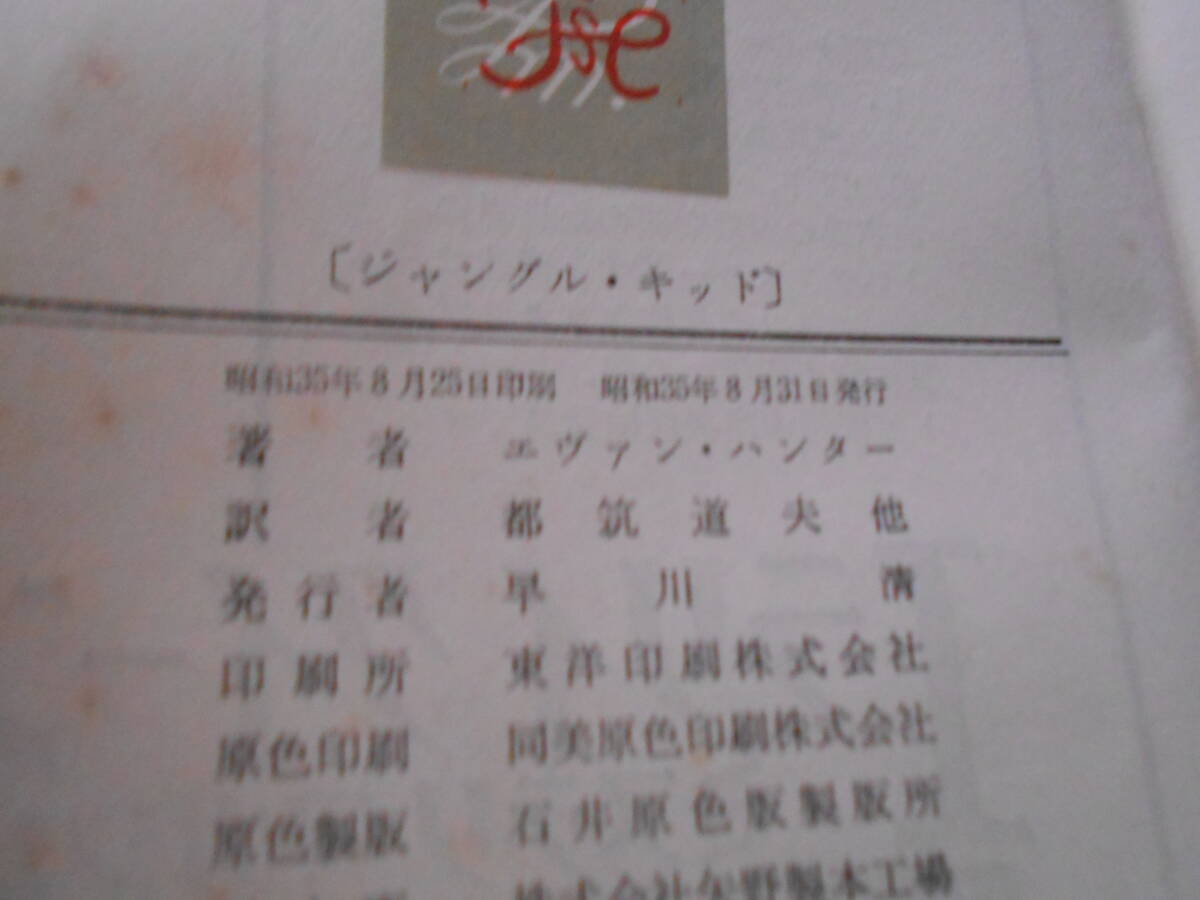 〔ジャングル・キッド〕
昭和35年8月25日印刷 昭和35年8月31日発行
著者 エヴァン・ハンター
訳者 都筑道夫他
発行者 早川清
印刷所 東洋印刷株式会社
原色印刷 同美原色印刷株式会社
原色製版 石井原色版製版所
株式会社矢野製本工場